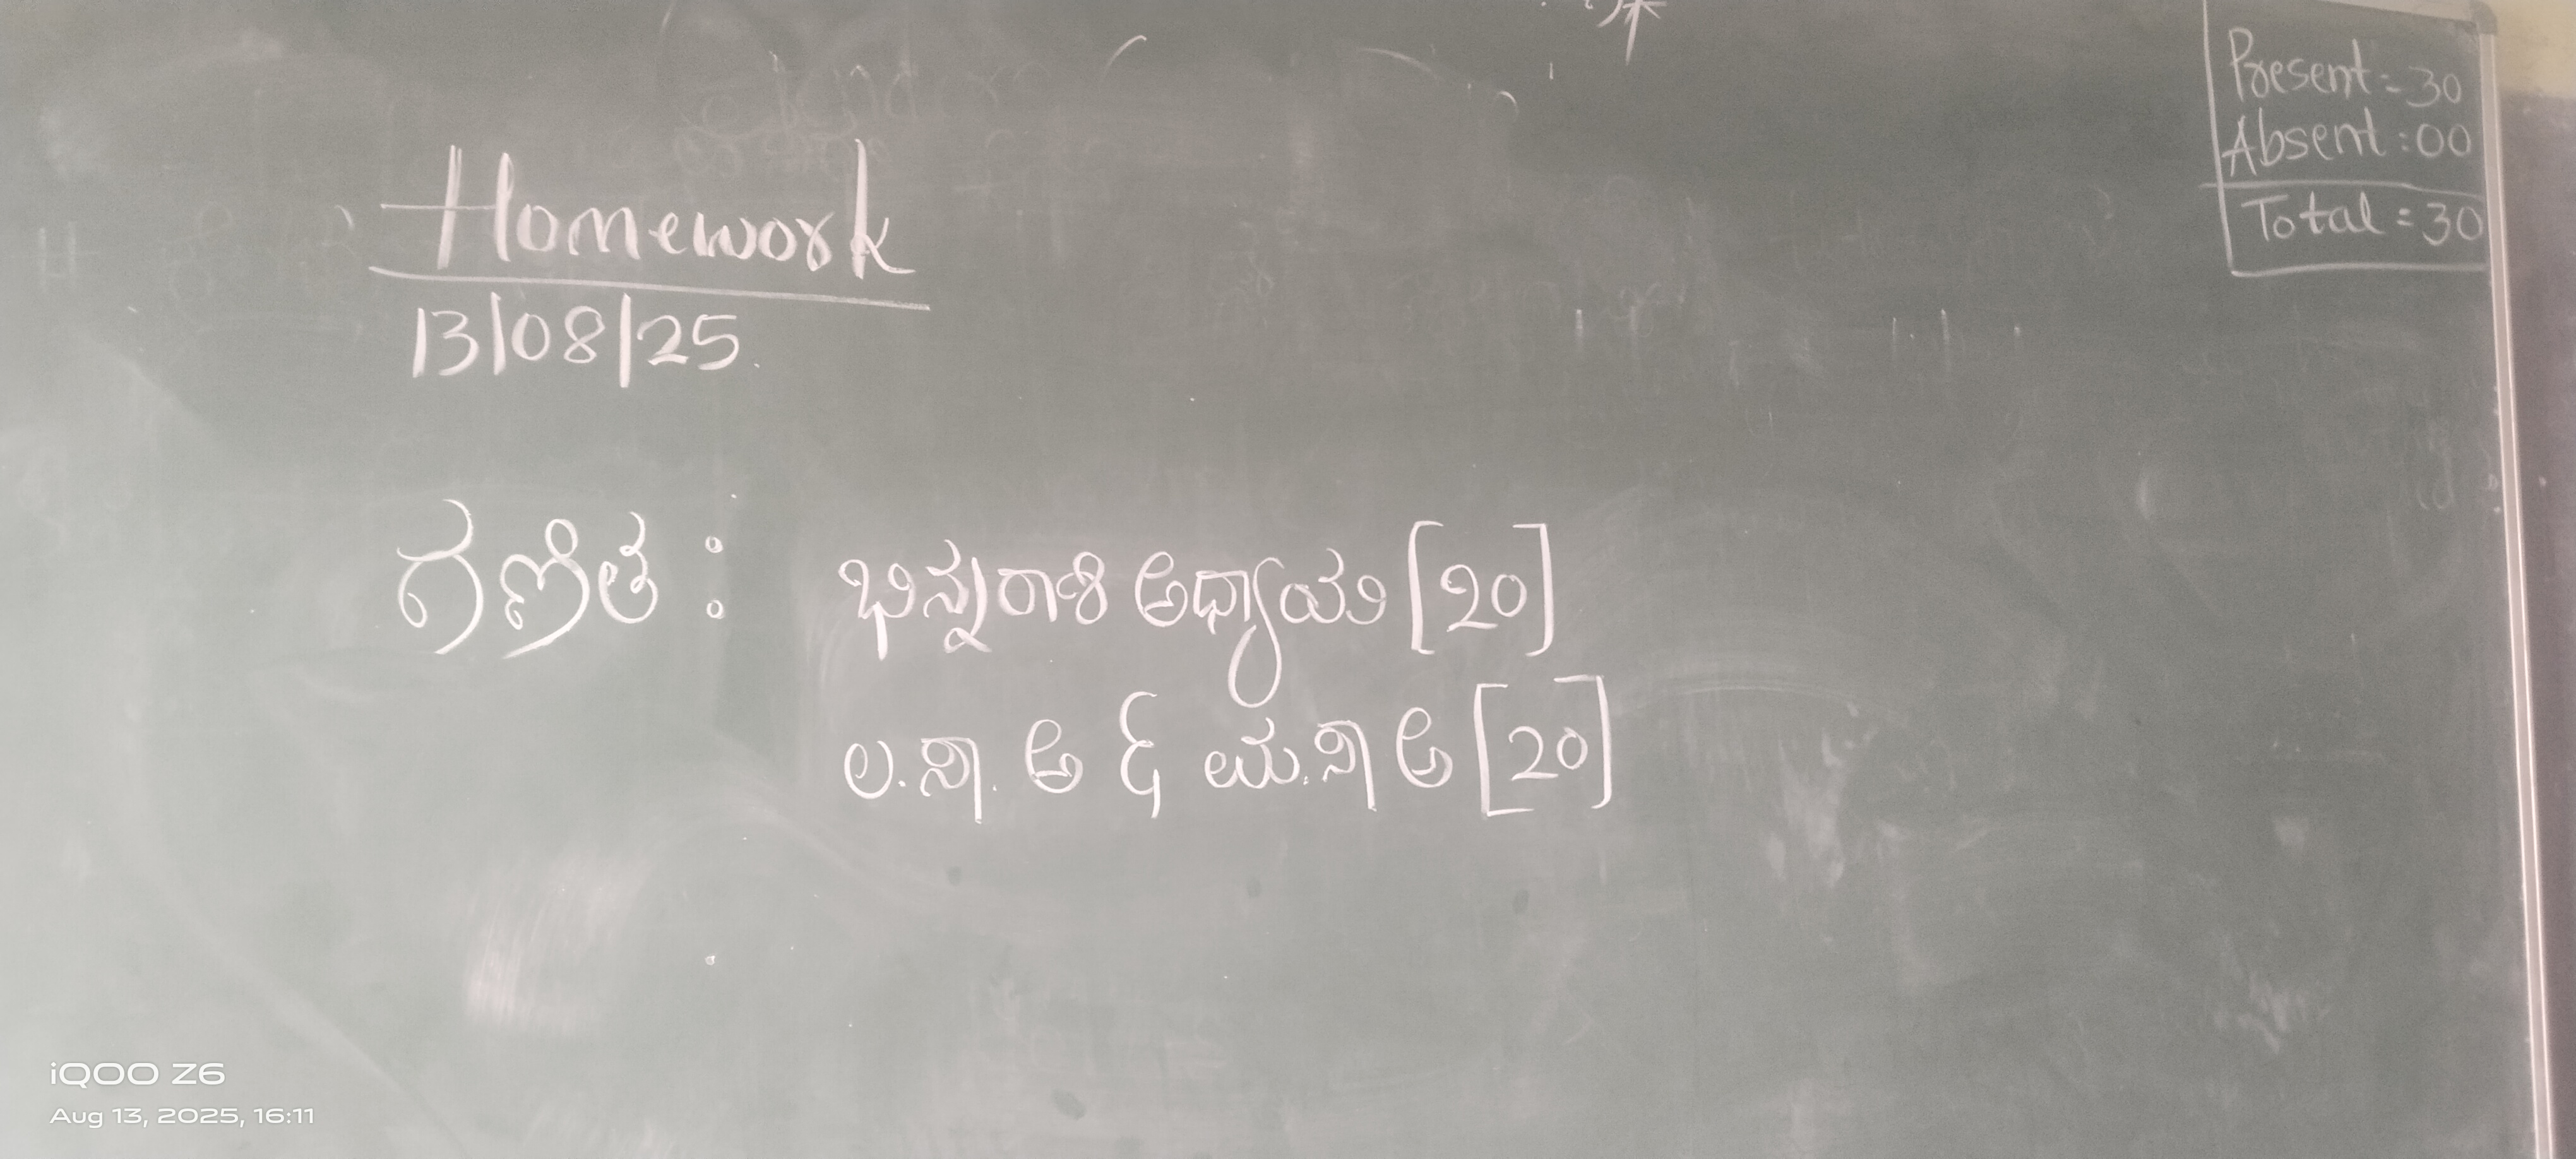 Present = 30
Absent : 00
Total = 30
Homework
13/08/25.
ಗಣಿತ : ಭಿನ್ನರಾಶಿ ಅಧ್ಯಾಯ [20]
ಲ.ಸಾ. ಅ & ಮ.ಸಾ ಅ [20]
iQOO Z6
Aug 13, 2025, 16:11